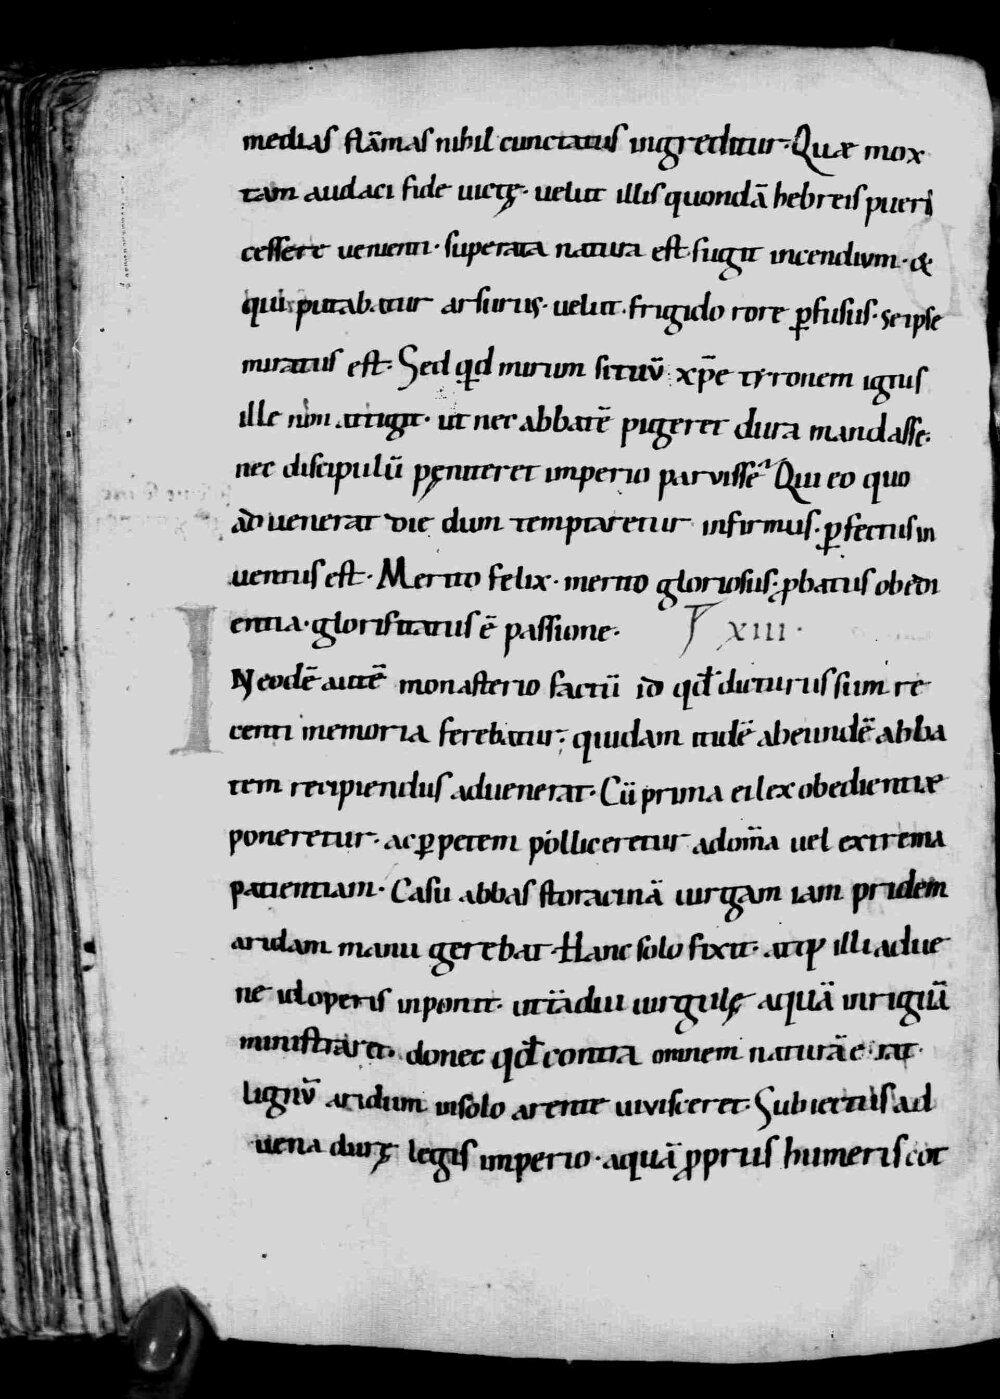 medias flāmas nihil cunctatus ingreditur· Quæ mox
tam audaci fide uictę· uelut illis quondā hebreis pueri
cessere uenienti· superata natura est· fugit incendium· &
qui putabatur arsurus· uelut frigido rore ꝑfusus· se ipse
miratus est· Sed qd mirum si tuū xp̄e tyronem ignis
ille non attigit· ut nec abbatē pigeret dura mandasse·
nec discipulū pęniteret imperio paruisse· Qui eo quo
aduenerat die dum temptaretur infirmus· ꝑfectus in
uentus est· Merito felix· merito gloriosus· ꝓbatus obedi
entia· glorificatus ē passione· XIII·
IN eodē autē monasterio factū id qđ dicturus sum re
centi memoria ferebatur· quidam itidē ad eundē abba
tem recipiendus aduenerat· Cū prima ei lex obedientiæ
poneretur· ac ꝑpetem polliceretur ad om̄ia uel extrema
patientiam· Casu abbas storacinā uirgam iam pridem
aridam manu gerebat· Hanc solo fixit· atq; illi adue
ne id operis inponit· ut tādiu uirgulę aquā inriguā
ministraret· donec qđ contra omnem naturā erat·
lignū aridum in solo arente uiuisceret· Subiectus ad
uena durę legis imperio· aquā ꝓpriis humeris cot